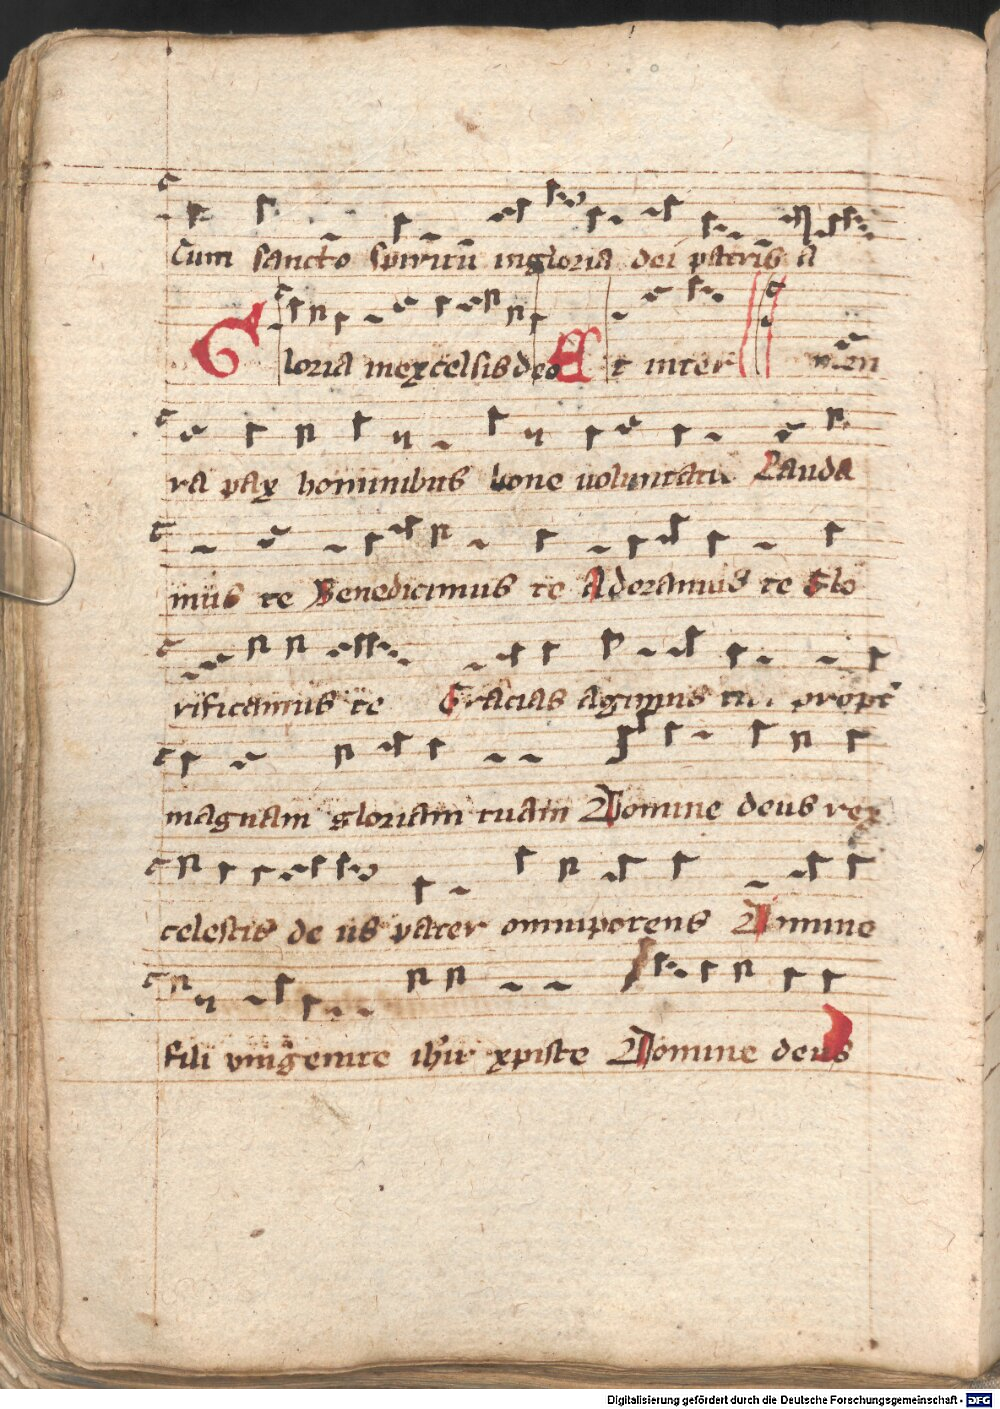 Cum sancto spiritu in gloria dei patris a
Gloria in excelsis deo Et in ter men
ra pax hominibus bone uoluntatis Lauda
mus te Benedicimus te Adoramus te Glo
rificamus te Gracias agimus tibi propt
magnam gloriam tuam Domine deus rex
celestis de us pater omnipotens Domine
fili vnigenite ihu xpiste Domine deus
Digitalisierung gefördert durch die Deutsche Forschungsgemeinschaft - DFG